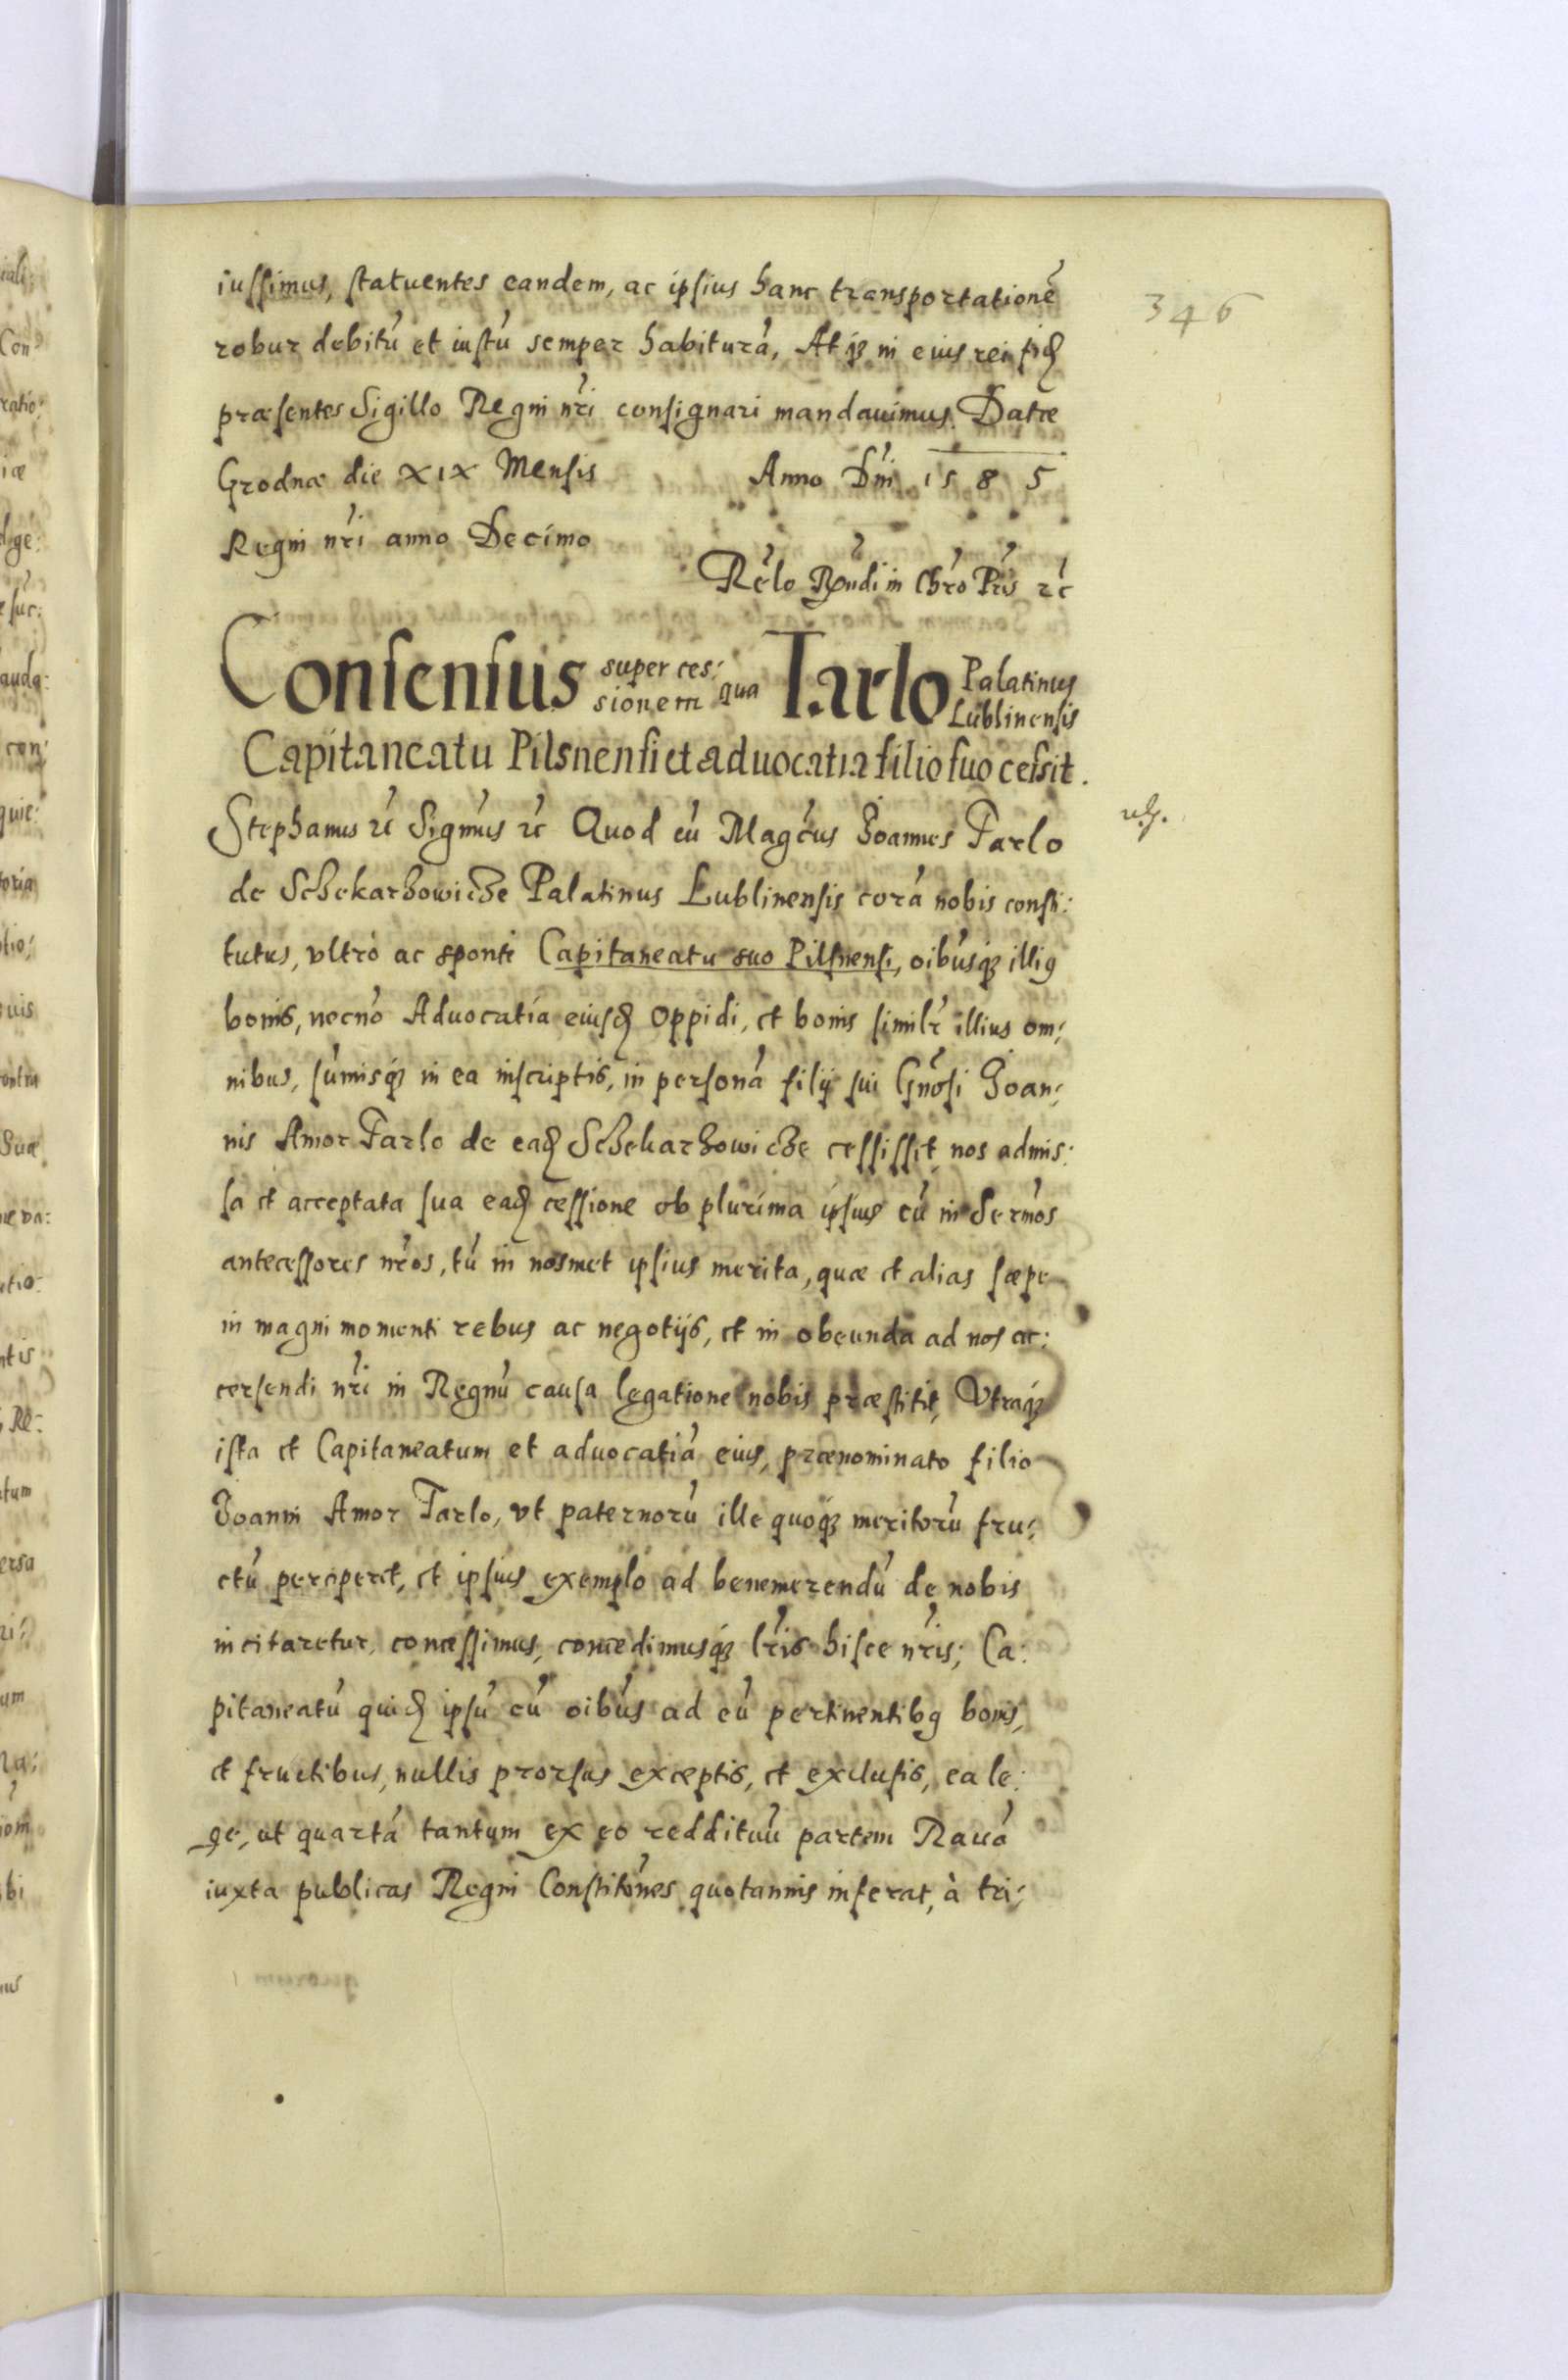 346
iussimus, statuentes eandem, ac ipsius hanc transportationē
robur debitū et iustū semper habiturā, Atq́3 in eius rei fidē
præsentes Sigillo Regni nr̃i consignari mandauimus. Datæ
Grodnæ die XIX Mensis Anno Dñi 1585
Regni nr̃i anno Decimo
Rel̃o Rñdi in Chr̃o Pr̃is ꝛc̃
Consensus super ces:
sionem qua Tarlo Palatinus
Lublinensis
Capitaneatu Pilsnensi et aduocatia filio suo cessit.
Stephanus ꝛc̃ Sigm̃us ꝛc̃ Quod cū Magc̃us Joannes Tarlo
de Sczekarzowicze Palatinus Lublinensis corā nobis consti:
tutus, vltrò ac sponte Capitaneatu suo Pilsnensi, oib̃usq́3 illiꝰ
bonis, necnō Aduocatia eiusdē oppidi, et bonis simil̃r illius om:
nibus, sum̃isq́3 in ea inscriptis, in personā filij sui Gñosi Joan:
nis Amor Tarlo de eadē Sczekarzowicze cessissit, nos admis:
sa et acceptata sua eadē cessione ob plurima ipsius cū in Serm̃os
antecessores nr̃os, tū in nosmet ipsius merita, quæ et alias sæpe
in magni momenti rebus ac negotijs, et in obeunda ad nos ac:
cersendi nr̃i in Regnū causa legatione nobis præstitit, Vtraq́3
ista et Capitaneatum et aduocatiā eius, prænominato filio
Joanni Amor Tarlo, vt paternorū ille quoq́3 meritorū fru:
ctū perciperet, et ipsius exemplo ad benemerendū de nobis
incitaretur, concessimus, concedimusq́3 lr̃is hisce nr̃is; Ca:
pitaneatū quidē ipsū cū oib̃us ad eū pertinentibꝰ bonis,
et fructibus, nullis prorsus exceptis, et exclusis, ea le:
ge, ut quartā tantum ex eo reddituū partem Rauā
iuxta publicas Regni Constitõnes quotannis inferat, à tri: